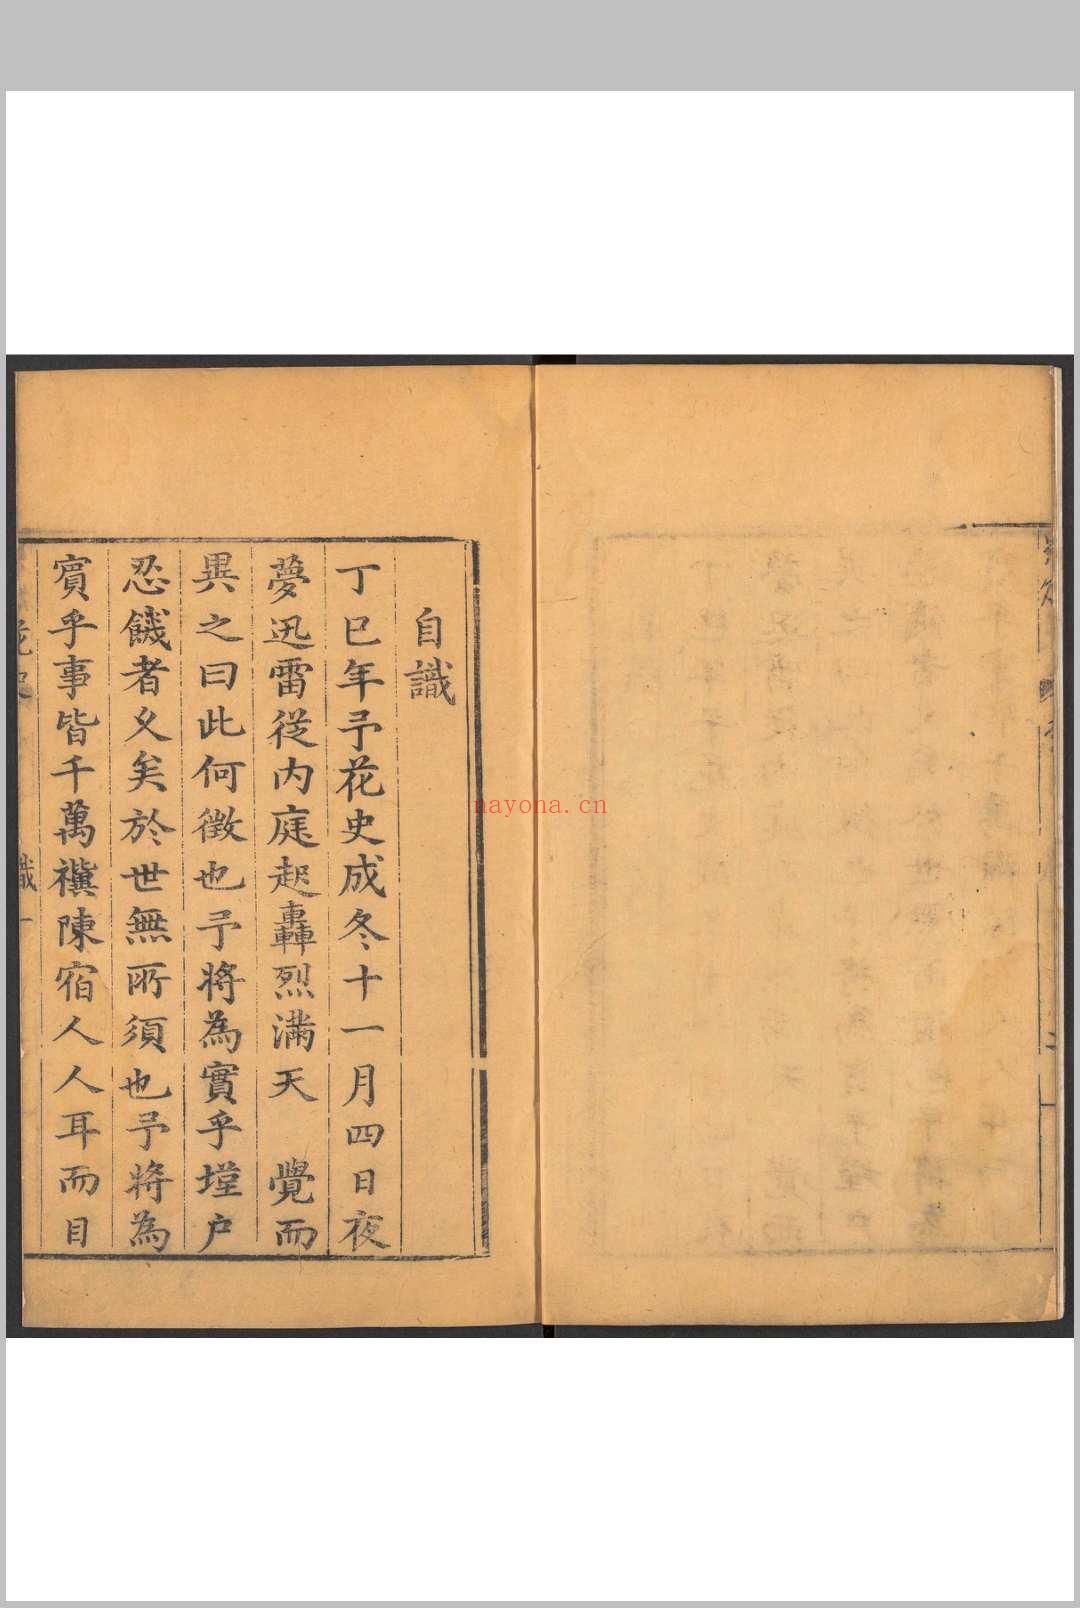 自識
丁巳年予花史成冬十一月四日夜
夢迅雷從内庭起轟烈滿天　覺而
異之曰此何徵也予將為實乎墐户
忍饑者乆矣於世無所須也予將為
賓乎事皆千萬禩陳宿人人耳而目
花史
識一
nayona.cn